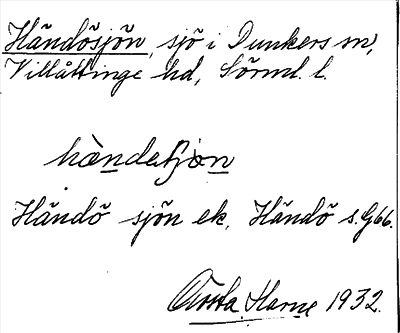 Händösjön, sjö i Dunkers sn,
Villåttinge hd, Sörml. l.
hàndeʃʃo̱n
Händö sjön ek. Händö s. G66.
Gösta Harne 1932.